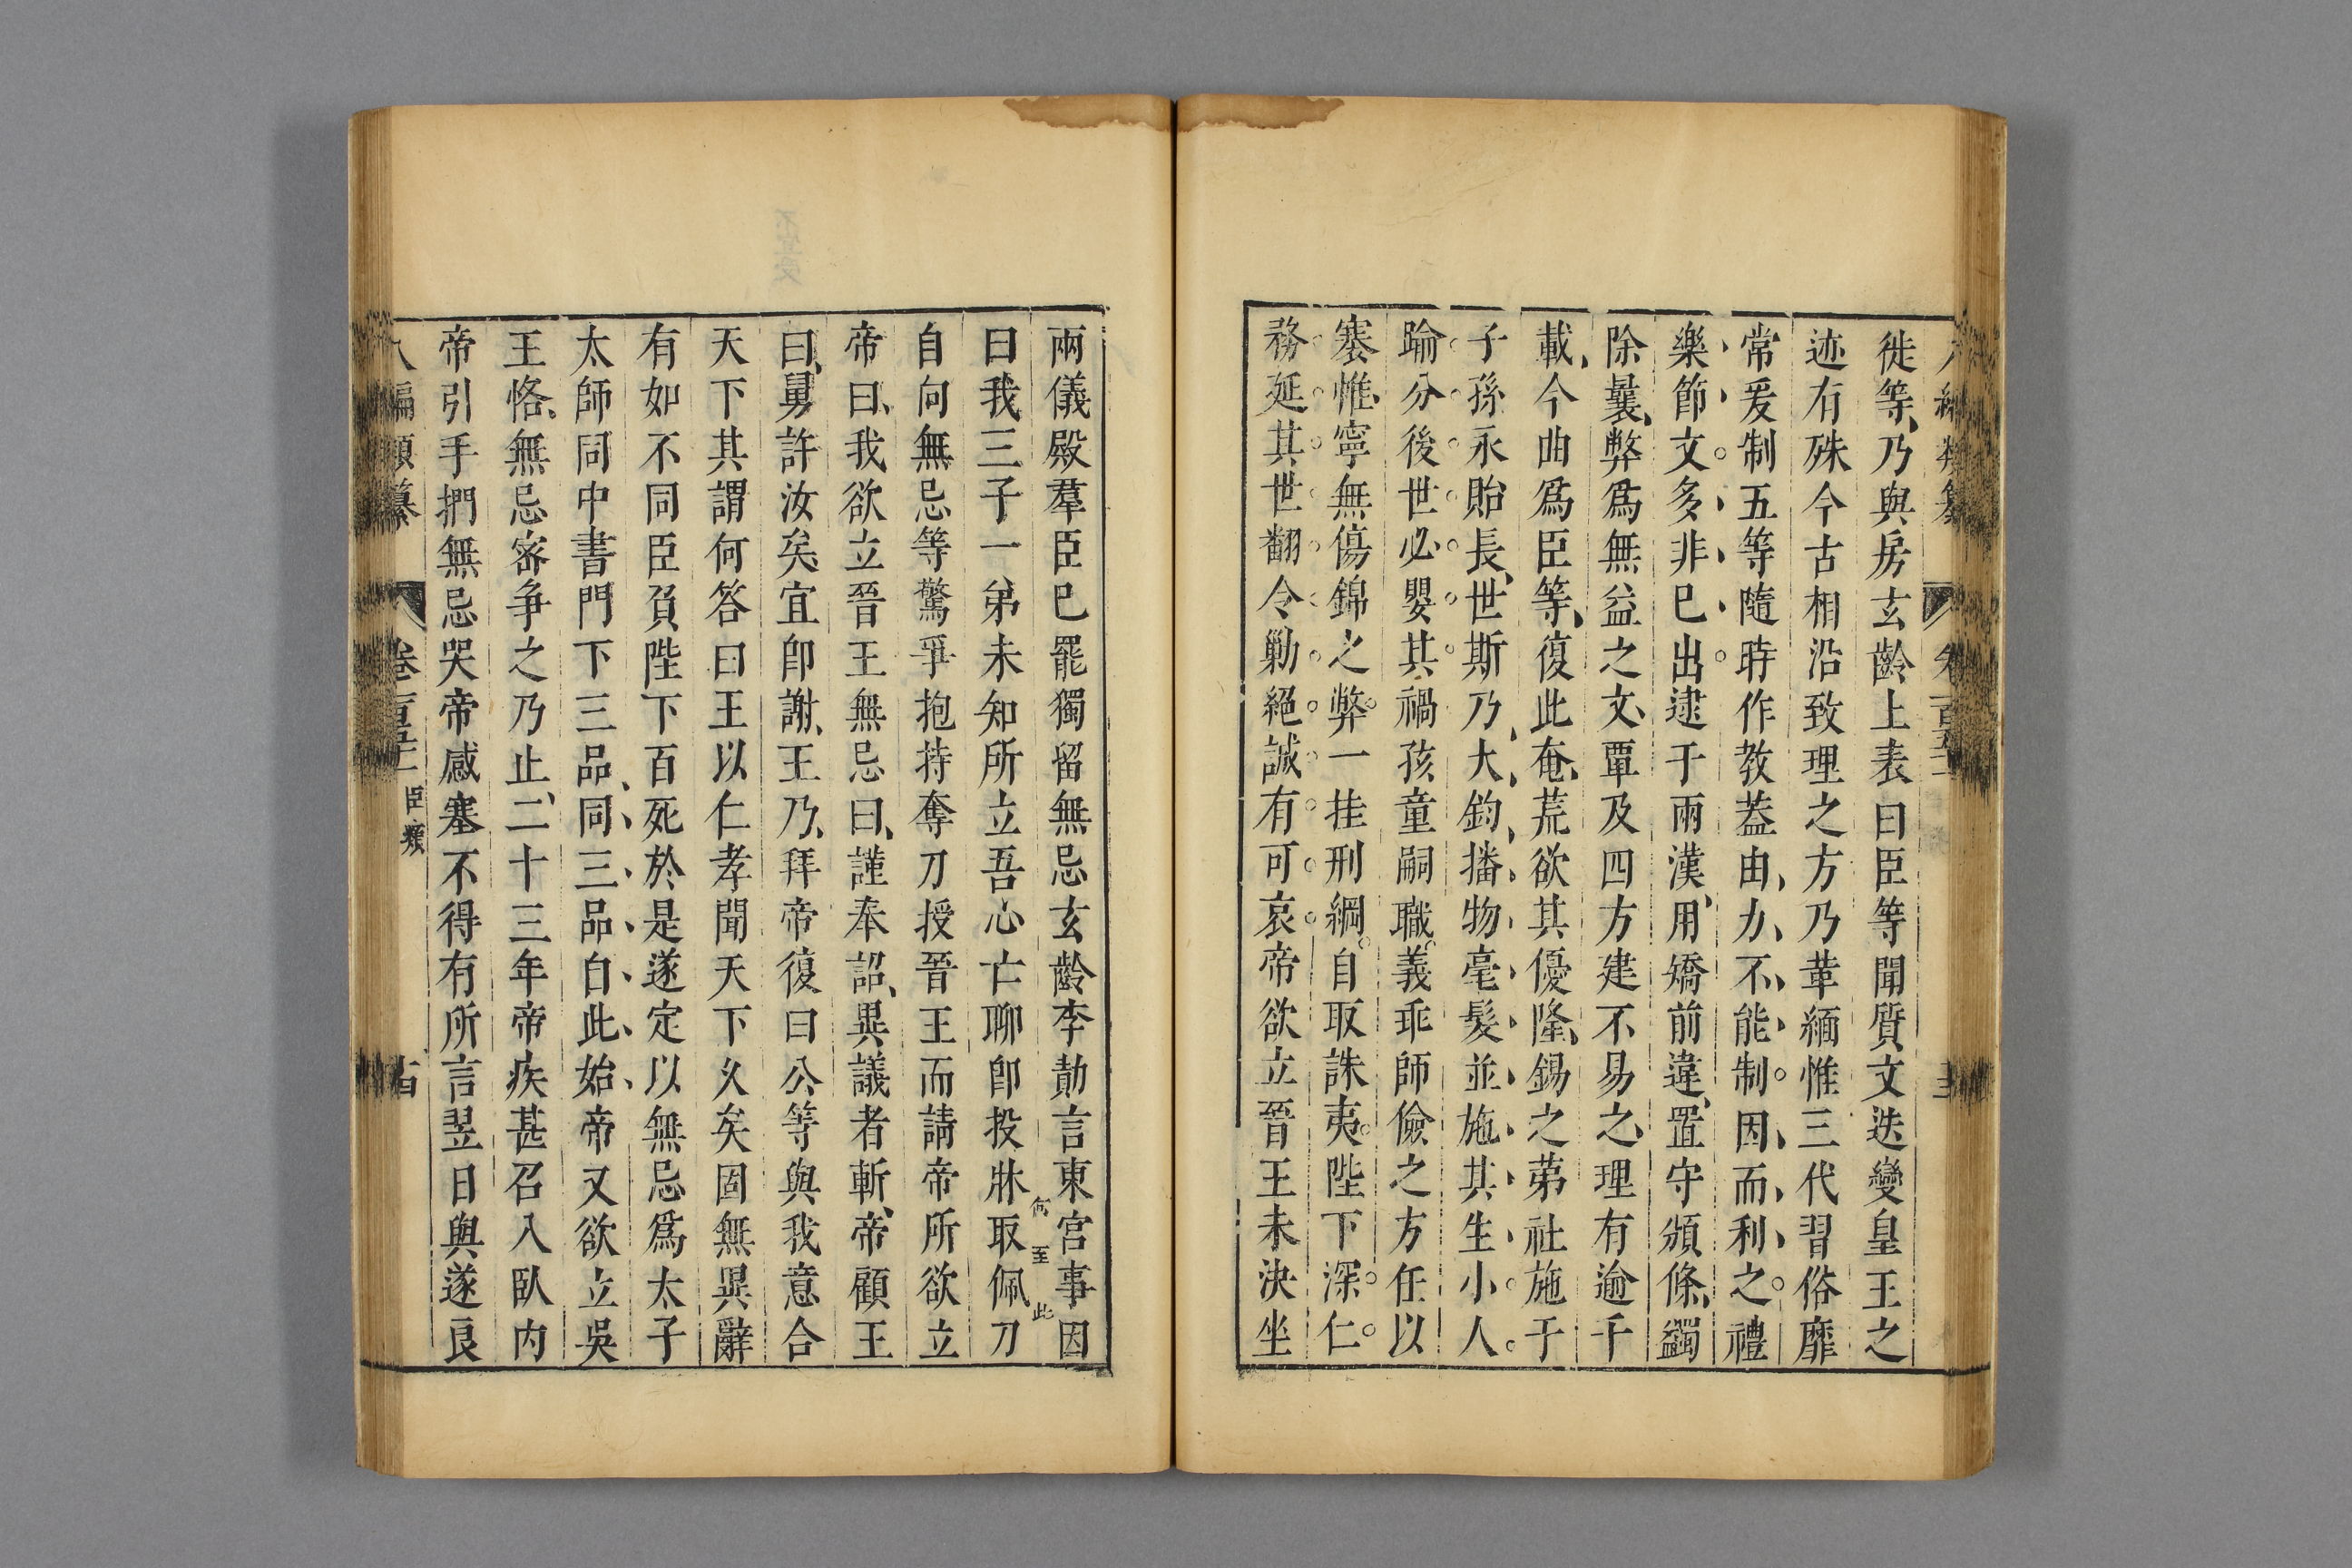 徙等乃與房玄齡上表曰臣等聞質文迭變皇王之
迹有殊今古相沿致理之方乃革緬惟三代習俗靡
常爰制五等隨時作教蓋由力不能制因而利之禮
樂節文多非已出逮于兩漢用矯前違置守頒條蠲
除曩弊爲無益之文覃及四方建不易之理有逾千
載今曲爲臣等復此奄荒欲其優隆錫之茅社施于
子孫永貽長世斯乃大鈞播物毫髮並施其生小人
踰分後世必嬰其禍孩童嗣職義乖師儉之方任以
褰惟寧無傷錦之弊一挂刑網自取誅夷陛下深仁
務延其世翻令勦絕誠有可哀帝欲立晉王未決坐
兩儀殿羣臣已罷獨留無忌玄齡李勣言東宮事因
曰我三子一弟未知所立吾心亡聊卽投牀取佩刀
何至此
自向無忌等驚爭抱持奪刀授晉王而請帝所欲立
帝曰我欲立晉王無忌曰謹奉詔異議者斬帝顧王
曰舅許汝矣宜卽謝王乃拜帝復曰公等與我意合
天下其謂何答曰王以仁孝聞天下久矣固無異辭
有如不同臣負陛下百死於是遂定以無忌爲太子
太師同中書門下三品同三品自此始帝又欲立吳
王恪無忌密爭之乃止二十三年帝疾甚召入臥內
帝引手捫無忌哭帝感塞不得有所言翌日與遂良
八編類纂 卷一百五十二 臣類